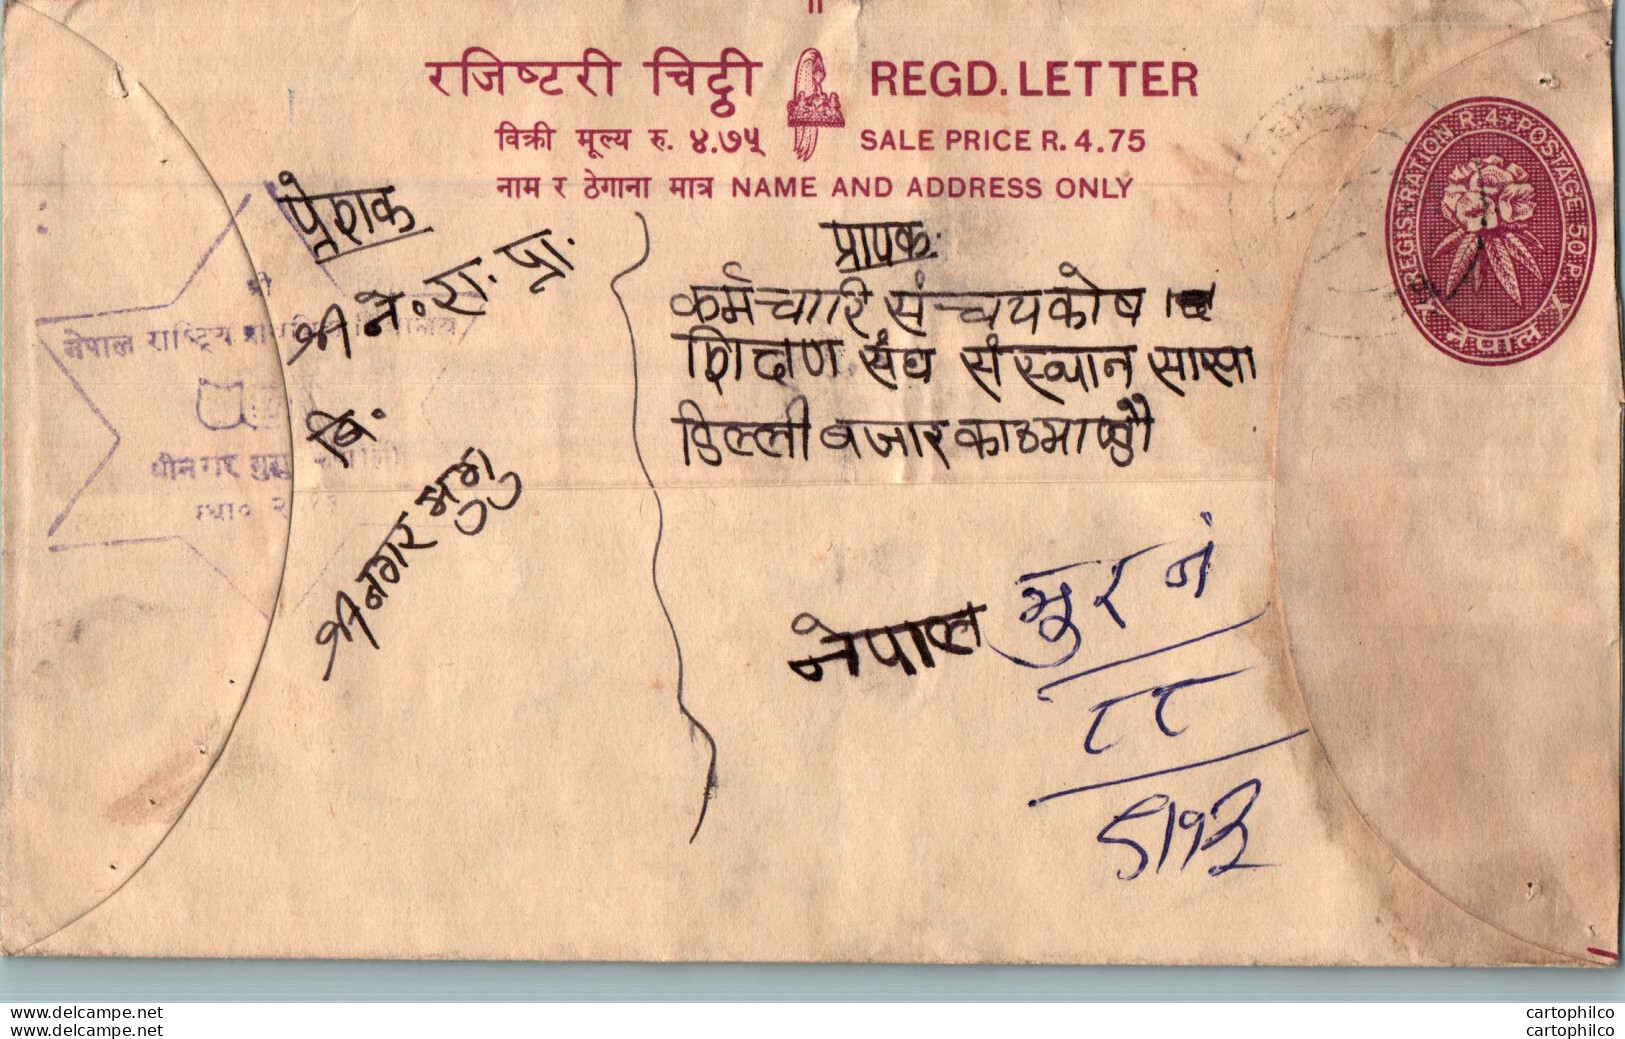 रजिष्टरी चिट्ठी REGD. LETTER
विक्री मूल्य रु. ४.७५ SALE PRICE R. 4.75
नाम र ठेगाना मात्र NAME AND ADDRESS ONLY
REGISTRATION R.4+POSTAGE 50 P.
नेपाल
प्रेशक
श्री ने. रा. प्रा.
वि.
श्रीनगर मुगु
श्री
नेपाल राष्ट्रिय
श्रीनगर मुगु
स्था०
प्रापक:
कर्मचारि संचयकोष
शिक्षण संघ संस्थान साखा
डिल्ली बजार काठमाण्डौ
नेपाल
८८
www.delcampe.net
www.delcampe.net
cartophilco
cartophilco